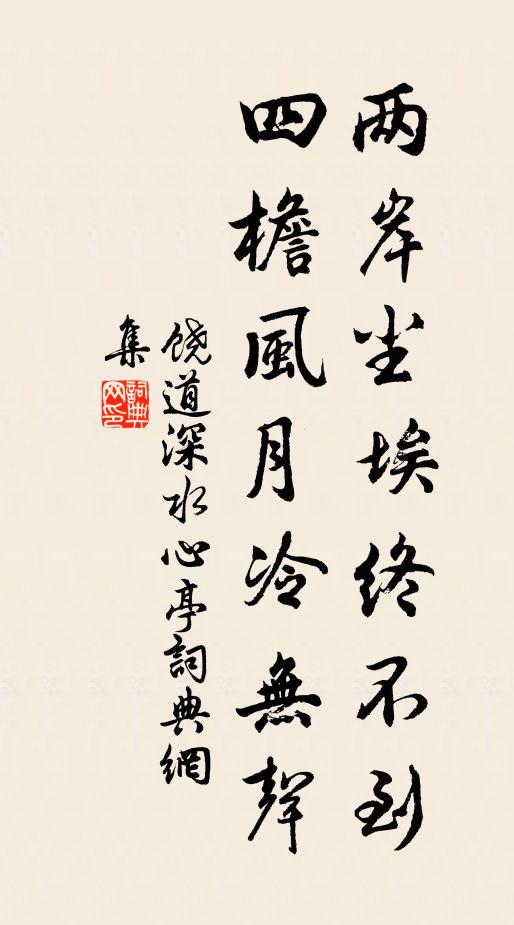 两岸尘埃终不到
四檐風月冷無聲
饶道深水心亭詞典網
集
詞典网印